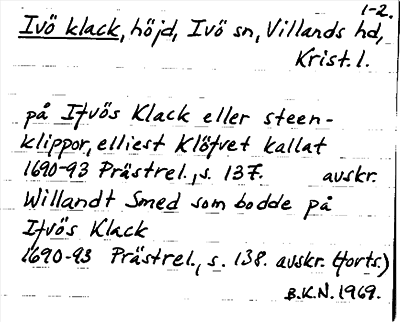 1-2.
Ivö klack, höjd, Ivö sn, Villands hd,
Krist. l.
på Ifvös Klack eller steen-
klippor, elliest Klöfvet kallat
1690-93 Prästrel., s. 137. avskr.
Willandt Smed som bodde på
Ifvös Klack
1690-93 Prästrel., s. 138. avskr. (forts.)
B.K.N. 1969.